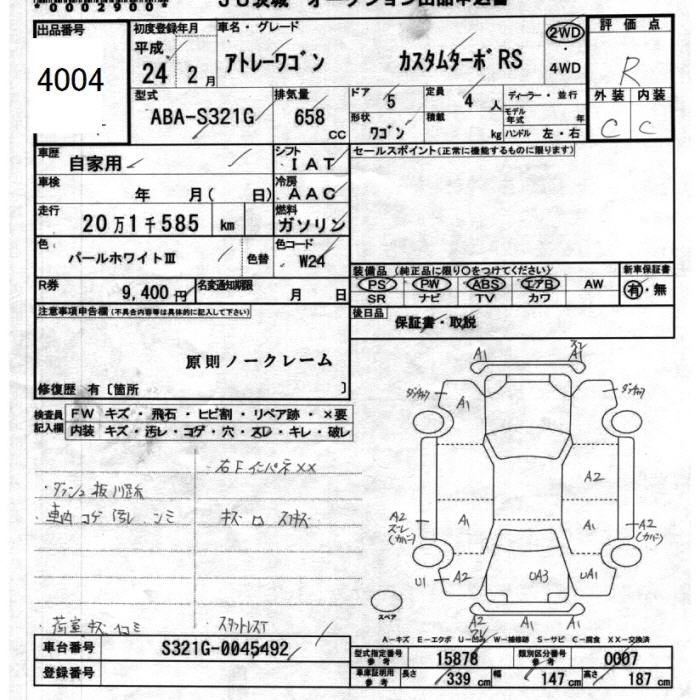 00029004 JU茨城 オークション出品申込書
出品番号 初度登録年月 車名・グレード 評価点
平成 2WD
4004 24 2月 アトレーワゴン カスタムターボRS 4WD R
型式 排気量 ドア 5 定員 4人 ディーラー・並行 外装 内装
ABA-S321G 658 CC 形状 ワゴン 積載 kg モデル年式 年 ハンドル 左・右 C C
車歴 自家用 シフト IAT セールスポイント(正常に機能するものに限ります)
車検 年 月( 日) 冷房 AAC
走行 20万1千585 km 燃料 ガソリン
色 パールホワイトⅢ 色替 色コード W24
装備品 (純正品に限り○をつけてください) 新車保証書
R券 9,400円 名変通知期限 月 日 PS PW ABS エアB AW 有・無
SR ナビ TV カワ
注意事項申告欄(不具合内容等は具体的に記入して下さい) 後日品 保証書・取説
原則ノークレーム
修復歴 有〔箇所 〕
検査員記入欄 FW キズ・飛石・ヒビ割・リペア跡・×要
内装 キズ・汚レ・コゲ・穴・スレ・キレ・破レ
右Fインパネ××
車内 コゲ 汚レ
荷室 キズ
A1 A1
A1
A2
A1 A1
A2 スレ (カバー) A2 (カバー)
U1 A2 UA3 UA1
A2 A1
スペア
A-キズ E-エクボ U-凹み W-補修跡 S-サビ C-腐食 XX-交換済
車台番号 S321G-0045492 型式指定番号 参考 15876 類別区分番号 参考 0007
登録番号 車庫証明用 参考 長さ 339 cm 幅 147 cm 高さ 187 cm